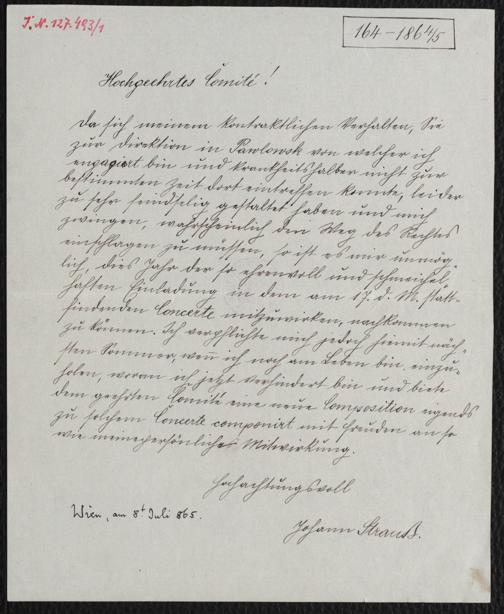 J. N. 127.493/1
164-1864/5
Hochgeehrtes Comité!
Da sich meinem kontraktlichen Verhalten, Sie
zur Direktion in Pawlowsk von welcher ich
engagiert bin und krankheitshalber nicht zur
bestimmten Zeit dort eintreffen konnte, leider
zu sehr feindselig gestaltet haben und mich
zwingen, wahrscheinlich den Weg des Rechtes
einschlagen zu müssen, so ist es mir unmög
lich, dies Jahr der so ehrenvoll und schmeichel
haften Einladung in dem am 17. d. M. statt-
findenden Concerte mitzuwirken, nachkommen
zu können. Ich verpflichte mich jedoch hiemit näch-
sten Sommer, wenn ich noch am Leben bin, einzu-
holen, woran ich jetzt verhindert bin und biete
dem geehrten Comité eine neue Composition eigends
zu solchem Concerte componirt mit Freuden an so
wie meine persönliche Mitwirkung.
Hochachtungsvoll
Wien, am 8t Juli 865.
Johann Strauß.